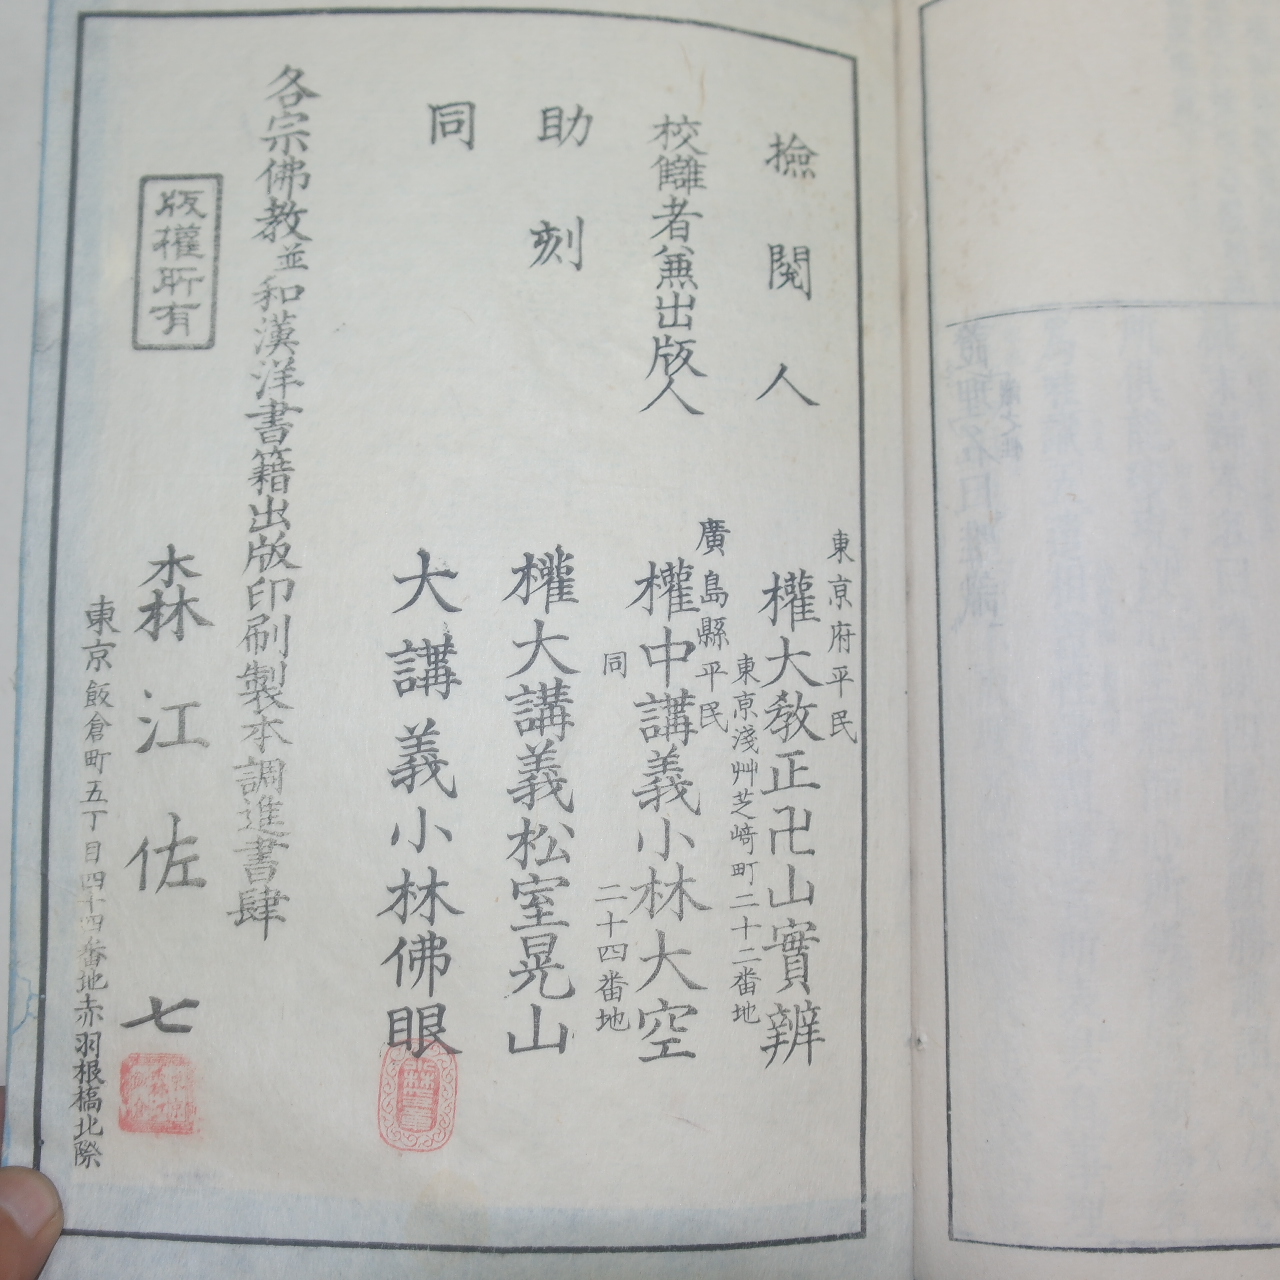 東京府平民
撿閱人 權大教正卍山實辨
東京淺艸芝﨑町二十二番地
廣島縣平民
校讎者兼出版人 權中講義小林大空
同 二十四番地
助刻 權大講義松室晃山
同 大講義小林佛眼
各宗佛教並和漢洋書籍出版印刷製本調進書肆
版權所有
森江佐七
東京飯倉町五丁目四十四番地赤羽根橋北際